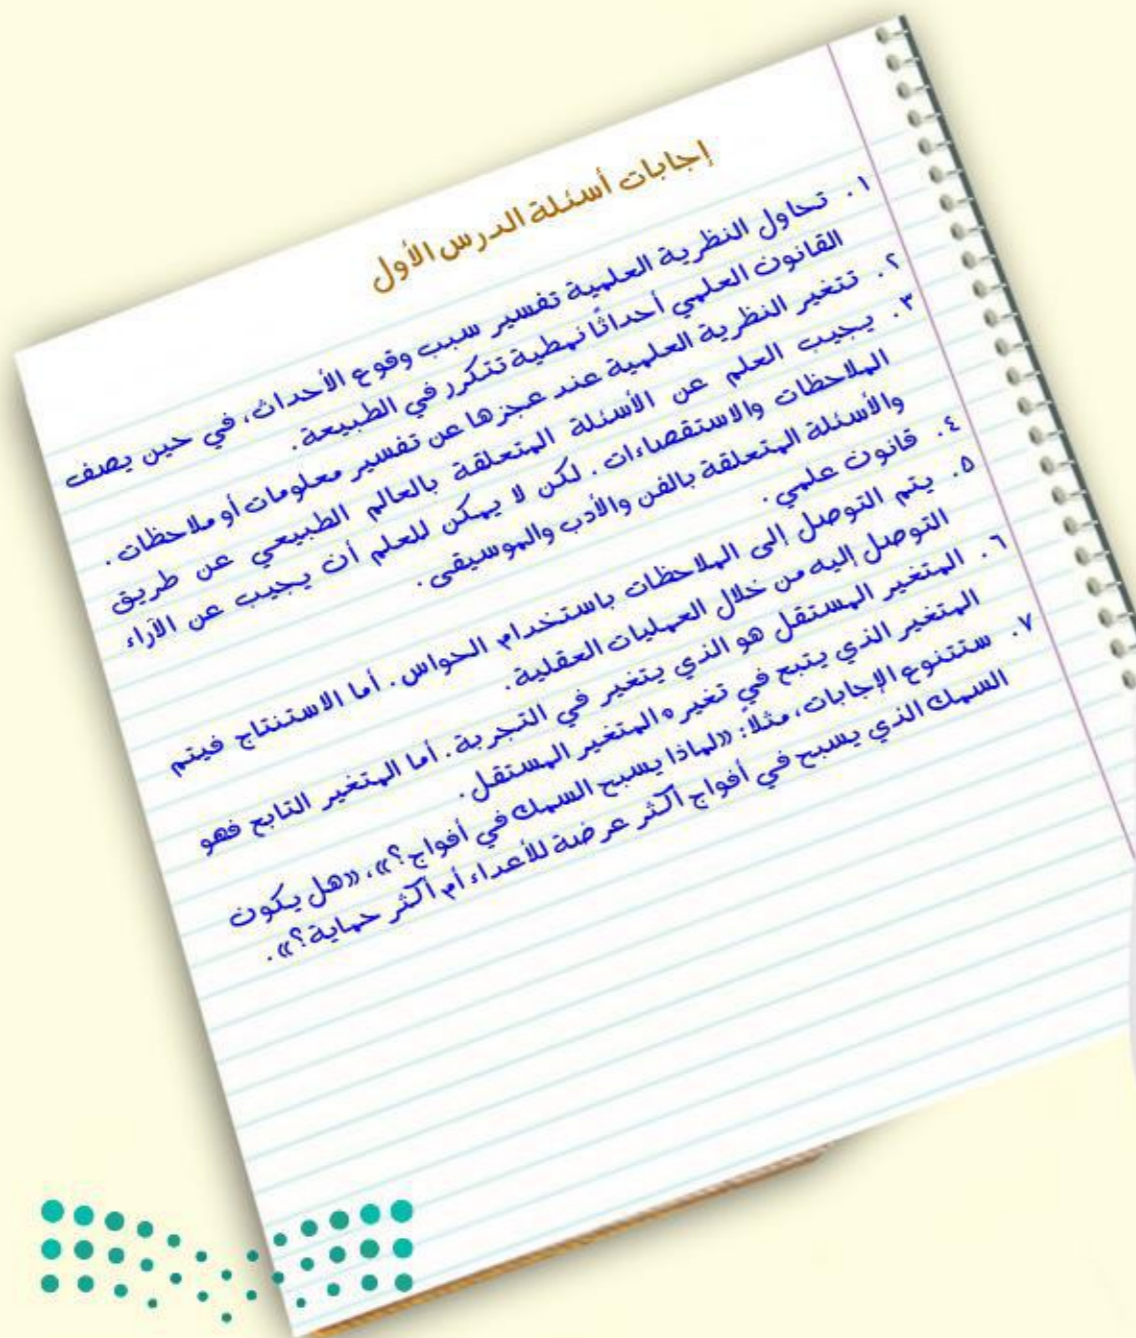 إجابات أسئلة الدرس الأول
١. تحاول النظرية العلمية تفسير سبب وقوع الأحداث، في حين يصف
القانون العلمي أحداثًا نمطية تتكرر في الطبيعة.
٢. تتغير النظرية العلمية عند عجزها عن تفسير معلومات أو ملاحظات.
٣. يجيب العلم عن الأسئلة المتعلقة بالعالم الطبيعي عن طريق
الملاحظات والاستقصاءات. لكن لا يمكن للعلم أن يجيب عن الآراء
والأسئلة المتعلقة بالفن والأدب والموسيقى.
٤. قانون علمي.
٥. يتم التوصل إلى الملاحظات باستخدام الحواس. أما الاستنتاج فيتم
التوصل إليه من خلال العمليات العقلية.
٦. المتغير المستقل هو الذي يتغير في التجربة. أما المتغير التابع فهو
المتغير الذي يتبع في تغيره المتغير المستقل.
٧. ستتنوع الإجابات، مثلاً: «لماذا يسبح السمك في أفواج؟»، «هل يكون
السمك الذي يسبح في أفواج أكثر عرضة للأعداء أم أكثر حماية؟».